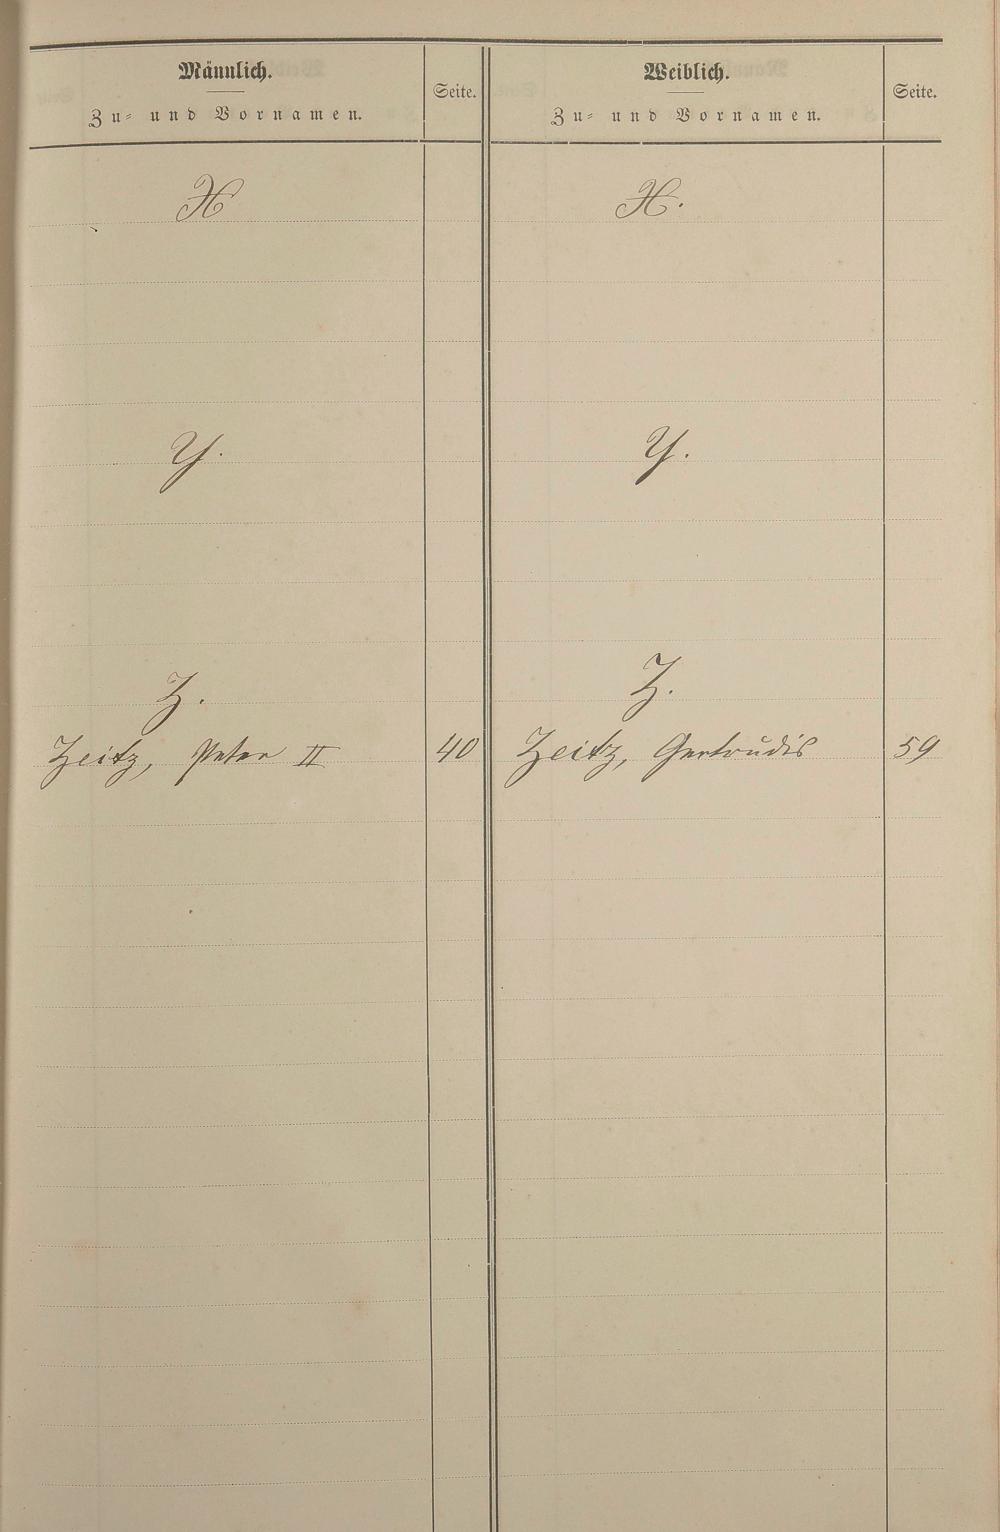 Männlich.
Zu- und Vornamen.
Seite.
Weiblich.
Zu- und Vornamen.
Seite.
X
X.
Y.
Y.
Z.
Z.
Zeitz, Peter II 40
Zeitz, Gertrudis 59